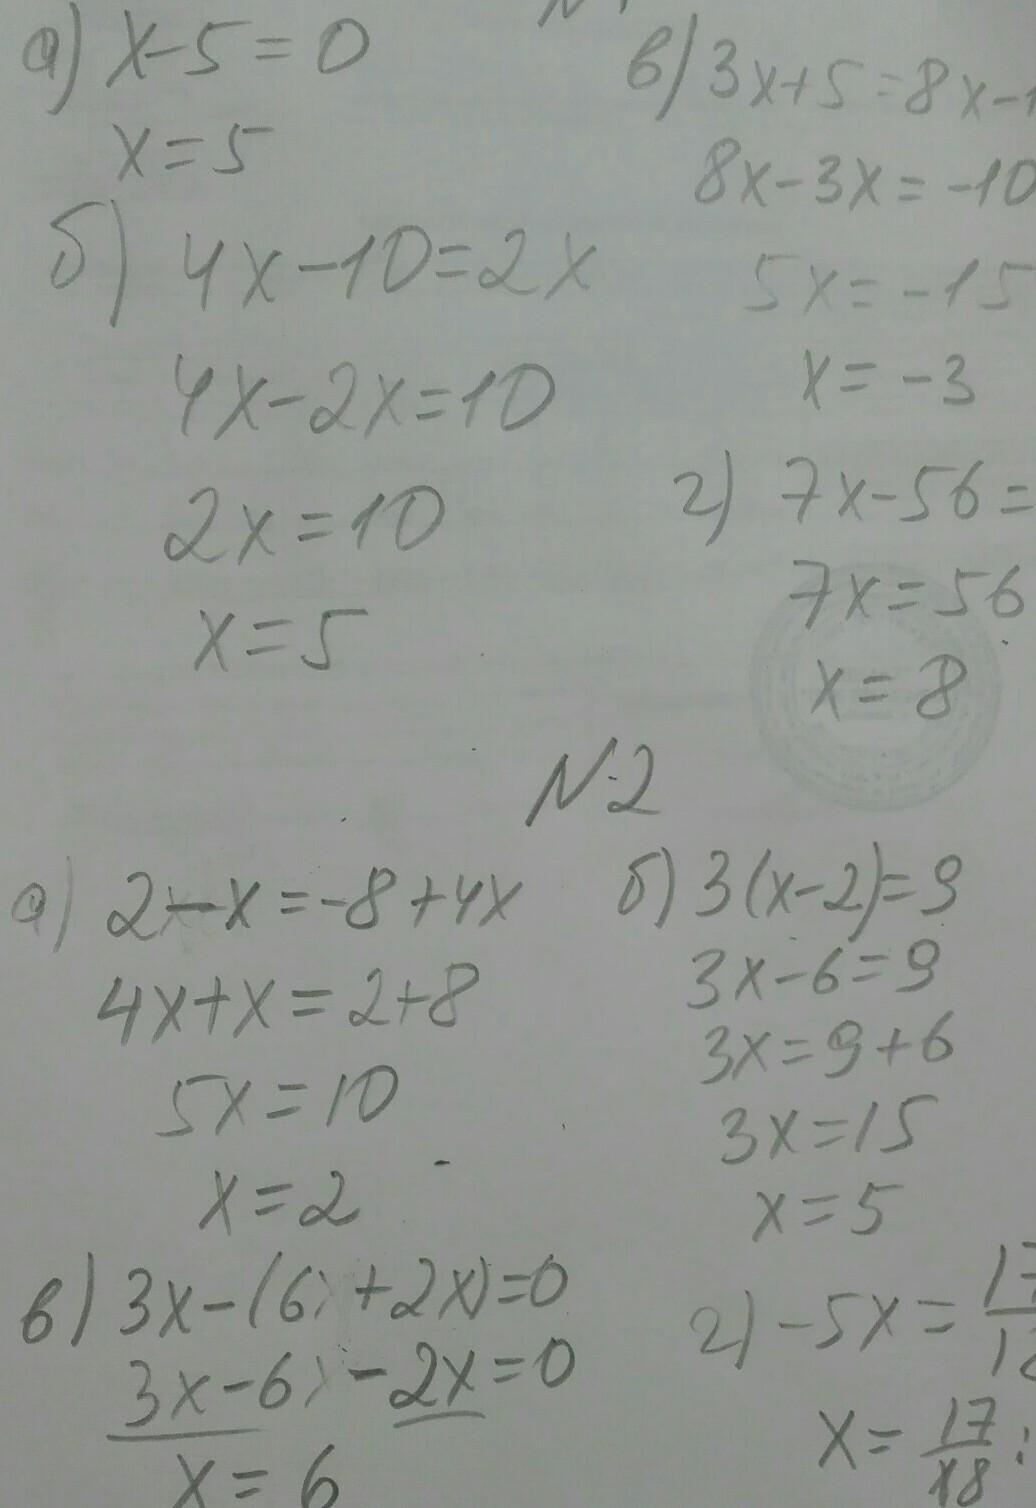 а) x-5=0
x=5
б) 4x-10=2x
4x-2x=10
2x=10
x=5
в) 3x+5=8x-1
8x-3x=-10
5x=-15
x=-3
г) 7x-56=
7x=56
x=8
N2
а) 2-x=-8+4x
4x+x=2+8
5x=10
x=2
б) 3(x-2)=9
3x-6=9
3x=9+6
3x=15
x=5
в) 3x-(6+2x)=0
3x-6-2x=0
x=6
г) -5x=17/1
x=17/18: